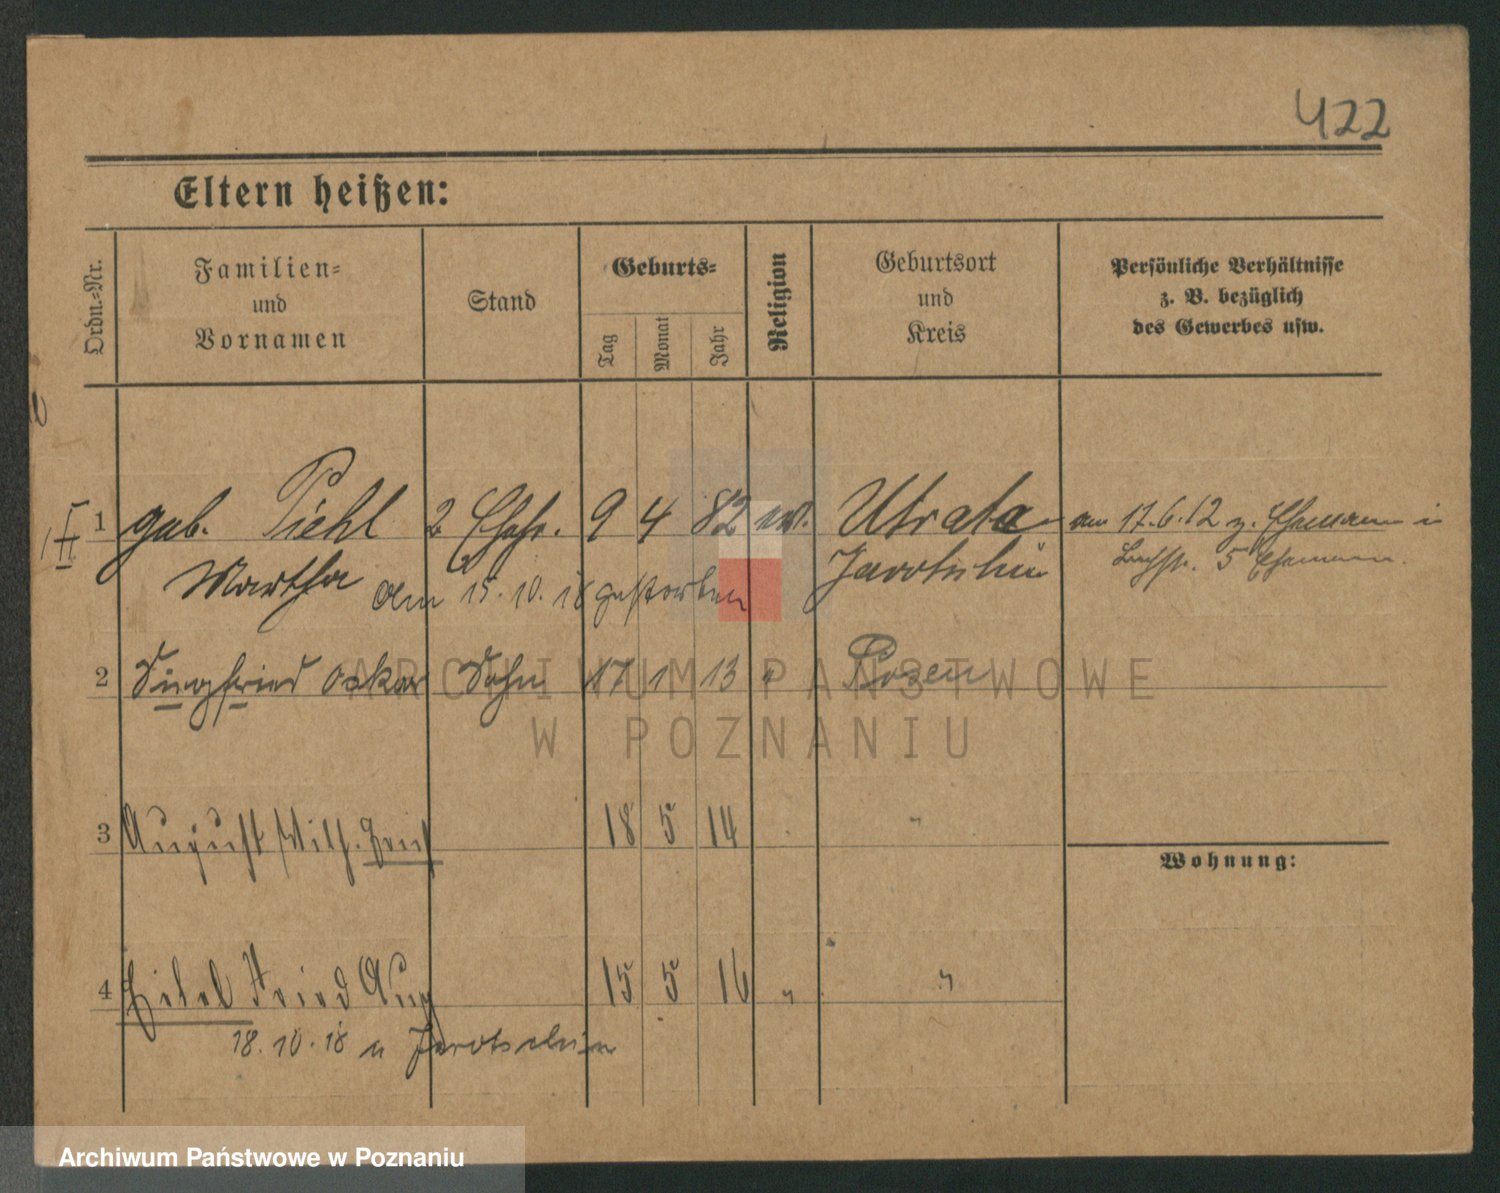 422
Eltern heißen:
Ordn.-Nr.
Familien- und Vornamen
Stand
Geburts-
Tag
Monat
Jahr
Religion
Geburtsort und Kreis
Persönliche Verhältnisse
z. B. bezüglich
des Gewerbes usw.
II 1 geb. Piehl 2 Ehefr. 9 4 82 ev. Utrata am 17.6.12 z. Ehemann
Martha Jarotschin 5 Ehemann.
am 15.10.18 gestorben
2 Siegfried Oskar Sohn 17 1 13 " Posen
3 August Wilh. Ernst 18 5 14 "
Wohnung:
4 Eitel Fried Aug 15 5 16 " "
18.10.18 n Jarotschin
ARCHIWUM PAŃSTWOWE
W POZNANIU
Archiwum Państwowe w Poznaniu